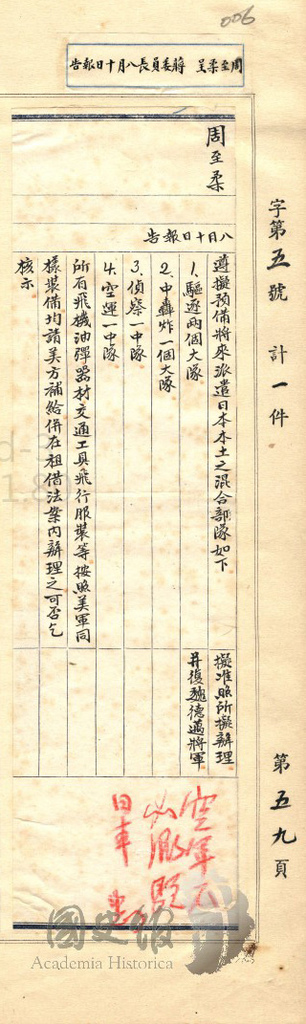 006
周至柔呈 蔣委員長八月十日報告
字第五號 計一件 第五九頁
周至柔
八月十日報告
遵擬預備將來派遣日本本土之混合部隊如下
1.驅逐兩個大隊
2.中轟炸一個大隊
3.偵察一中隊
4.空運一中隊
所有飛機油彈器材交通工具飛行服裝等按照美軍同
樣裝備均請美方補給併在租借法案內辦理之可否乞
核示
擬准照所擬辦理
并復魏德邁將軍
空軍不
必派駐
日本
國史館
Academia Historica